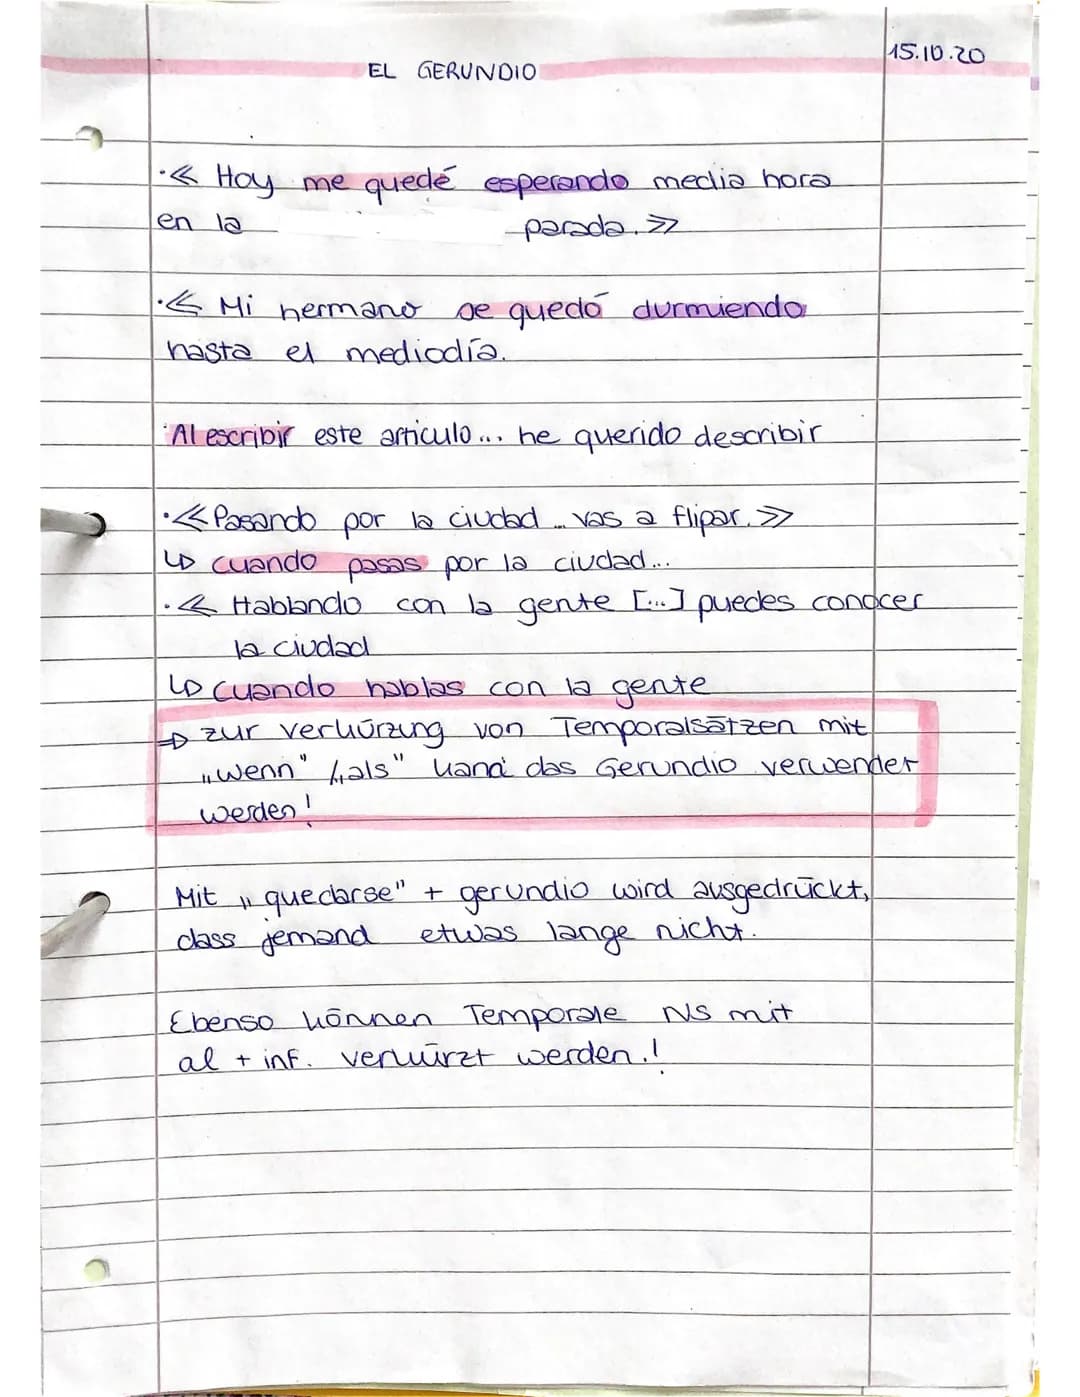 15.10.20
EL GERUNDIO
·≪ Hoy me quedé esperando media hora
en la parada. ≫
·≪ Mi hermano se quedó durmiendo
hasta el mediodía.
·Al escribir este articulo... he querido describir
·≪ Pasando por la ciudad ... vas a flipar. ≫
↳ cuando pasas por la ciudad...
·≪ Hablando con la gente [...] puedes conocer
la ciudad
↳ cuando hablas con la gente
⇒ zur verkürzung von Temporalsätzen mit
„wenn" / „als" kann das Gerundio verwendet
werden!
Mit „quedarse" + gerundio wird ausgedrückt,
dass jemand etwas lange nicht.
Ebenso können Temporale NS mit
al + inf. verkürzt werden.!